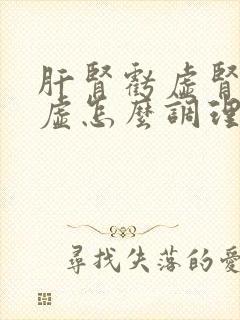 肝腎虧虛腎
虛怎麼調理
尋找失落的愛